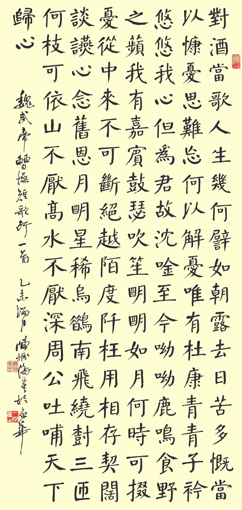 對酒當歌人生幾何譬如朝露去日苦多慨當
以慷憂思難忘何以解憂唯有杜康青青子衿
悠悠我心但為君故沈唫至今呦呦鹿鳴食野
之蘋我有嘉賓鼓瑟吹笙明明如月何時可掇
憂從中來不可斷絕越陌度阡枉用相存契闊
談讌心念舊恩月明星稀烏鵲南飛繞樹三匝
何枝可依山不厭高水不厭深周公吐哺天下
歸心
魏武帝曹操短歌行一首 乙未